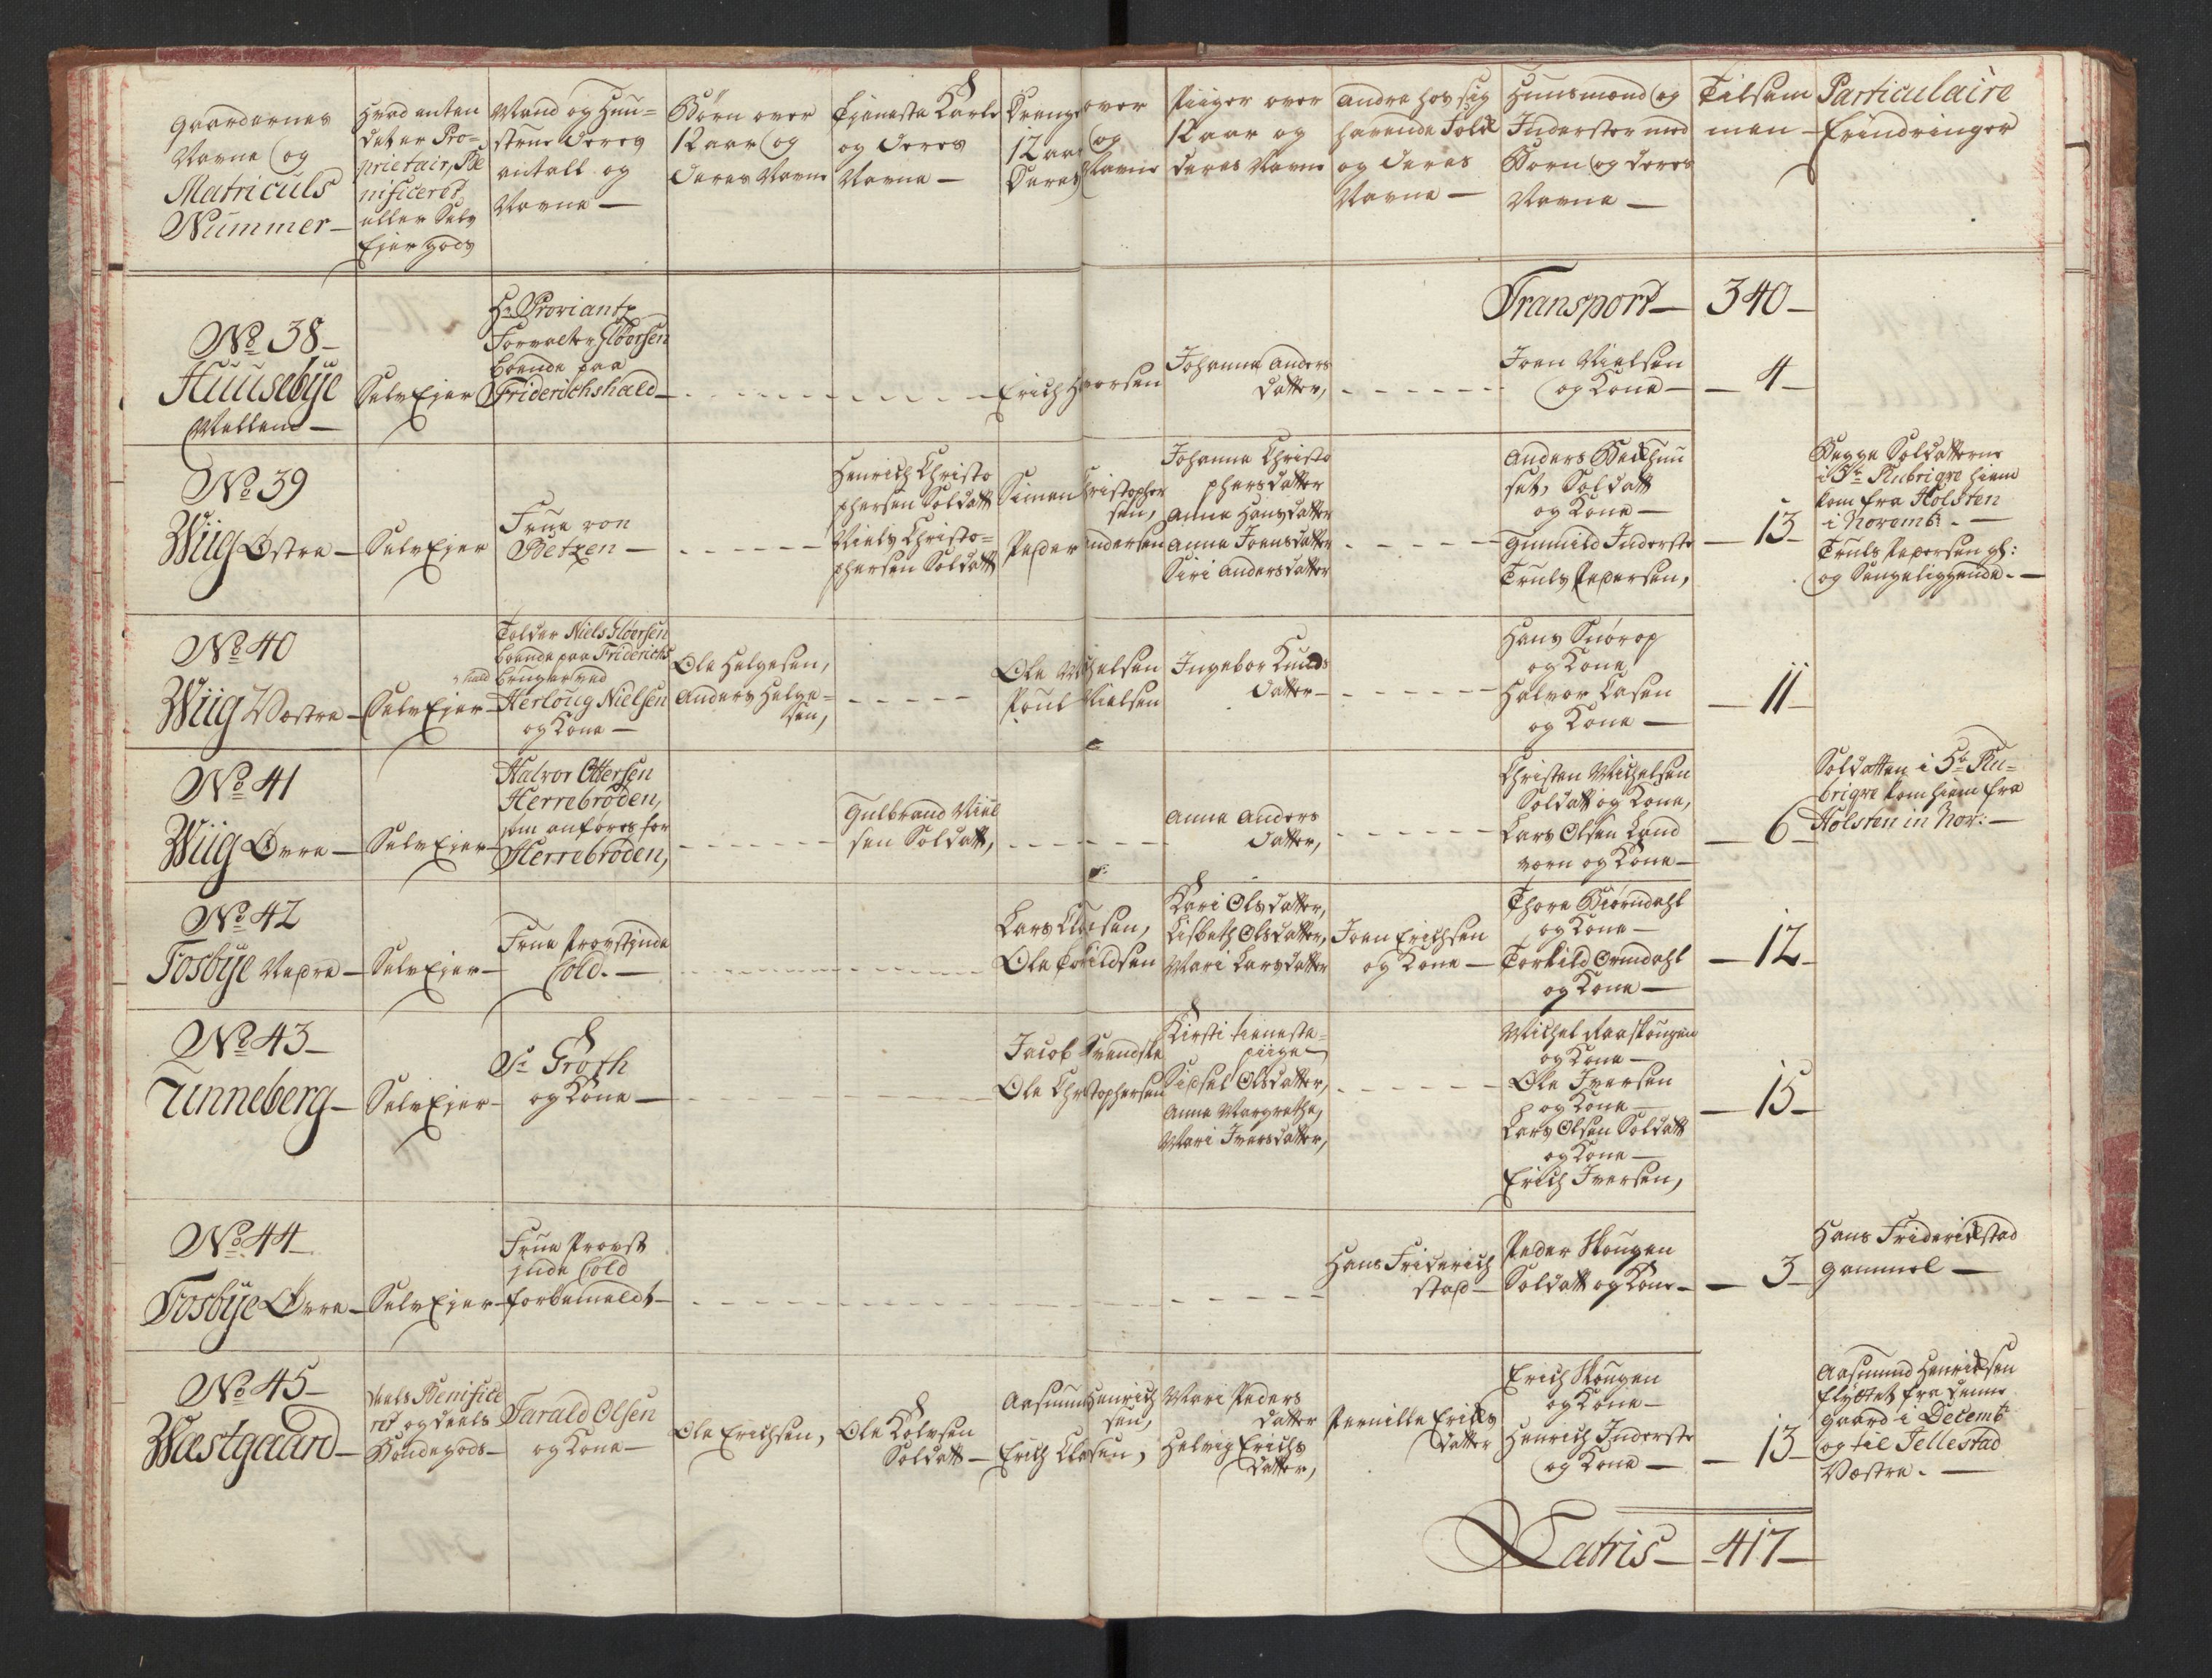 Gaardernes
Navne og
Matriculs
Nummer
Hvad enten
det er Pro-
prietair, Be
nificeret,
eller Selv
Ejer gods
Mand og Huu-
strue Deres
antall og
Navne
Börn over
12 aar og
Deres Navne
Tjeneste Karle
og Deres
Navne
Drenge over
12 aar og
Deres Navne
Piiger over
12 aar og
Deres Navne
Andre hos sig
havende Folk
og Deres
Navne
Huusmænd og
Inderster med
Børn og deres
Navne
Tilsam
men
Particulaire
Erindringer
Transport 340
No 38
Huusebye
Mellem
Selv Ejer
Hr Proviant
Forvalter Gloersen
boende paa
Friderichshald
Erich Haversen
Johanna Anders
Datter,
Joen Nielsen
og Kone
4
No 39
Wiig Østre
Selv Ejer
Frue von
Betzen
Henrich Christo
phersen Soldatt
Niels Christo-
phersen Soldatt
Simen Christopher
sen,
Peder Andersen
Johanna Christo
phersdatter
Anne Hansdatter
Anne Joensdatter
Siri Andersdatter
Anders Beckhuu
set, Soldatt
og Kone
Gunnild Inderste
Truls Pedersen,
13
Begge Soldatterne
i 5te Rubrigve hiem
kom fra Holsten
i Novembr.
Truls Pedersen gl:
og Sengeliggende.
No 40
Wiig Westre
Selv Ejer
Tolder Niels Gloersen
boende paa Friderichs
hald bruger ved
Herloug Nielsen
og Kone
Ole Helgesen,
Anders Helge-
sen,
Ole Michelsen
Poul Nielsen
Ingebor Knuds
Datter
Hans Snörop
og Kone
Halvor Lasen
og Kone
11
No 41
Wiig Øvre
Selv Ejer
Halvor Ottersen
Herrebröden,
som anføres for
Herrebröden,
Gulbrand Niel
sen Soldatt,
Anne Anders
Datter,
Christen Michelsen
Soldatt og Kone,
Lars Olsen Land
værn og Kone
6
Soldatten i 5te Ru-
brigve kom hiem fra
Holsten in Nov:
No 42
Tosbye Nedre
Selv Ejer
Frue Provstinde
Cold.
Lars Olsen,
Ole Torkildsen
Kari Olsdatter,
Lisbeth Olsdatter,
Mari Larsdatter
Joen Erichsen
og Kone
Thore Biørndahl
og Kone
Torkild Ormdahl
og Kone
12
No 43
Tunneberg
Selv Ejer
Sr Groth
og Kone
Jacob Svendske
Ole Christophersen
Kirsti tieneste-
piige
Sidsel Olsdatter,
Anne Margrethe,
Mari Iversdatter,
Michel Raaskougen
og Kone
Ole Iversen
og Kone
Lars Olsen Soldatt
og Kone
Erich Iversen,
15
No 44
Tosbye Øvre
Selv Ejer
Frue Provst
inde Cold
forbemeldt
Hans Friderich
stad
Peder Skougen
Soldatt og Kone
3
Hans Friderickstad
gammel
No 45
Wæstgaard
deels Benifice
ret og deels
Bondegods
Harald Olsen
og Kone
Ole Erichsen,
Ole Kolvsen
Soldatt
Aasmund Henrich
sen,
Erich Clasen,
Mari Peders
Datter
Helvig Erichs
Datter,
Pernille Erichs
Datter
Erich Skougen
og Kone
Henrich Inderste
og Kone
13
Aasmund Henricksen
flyttet fra denne
gaard i Decembr
og til Jellestad
Westre.
Latris 417